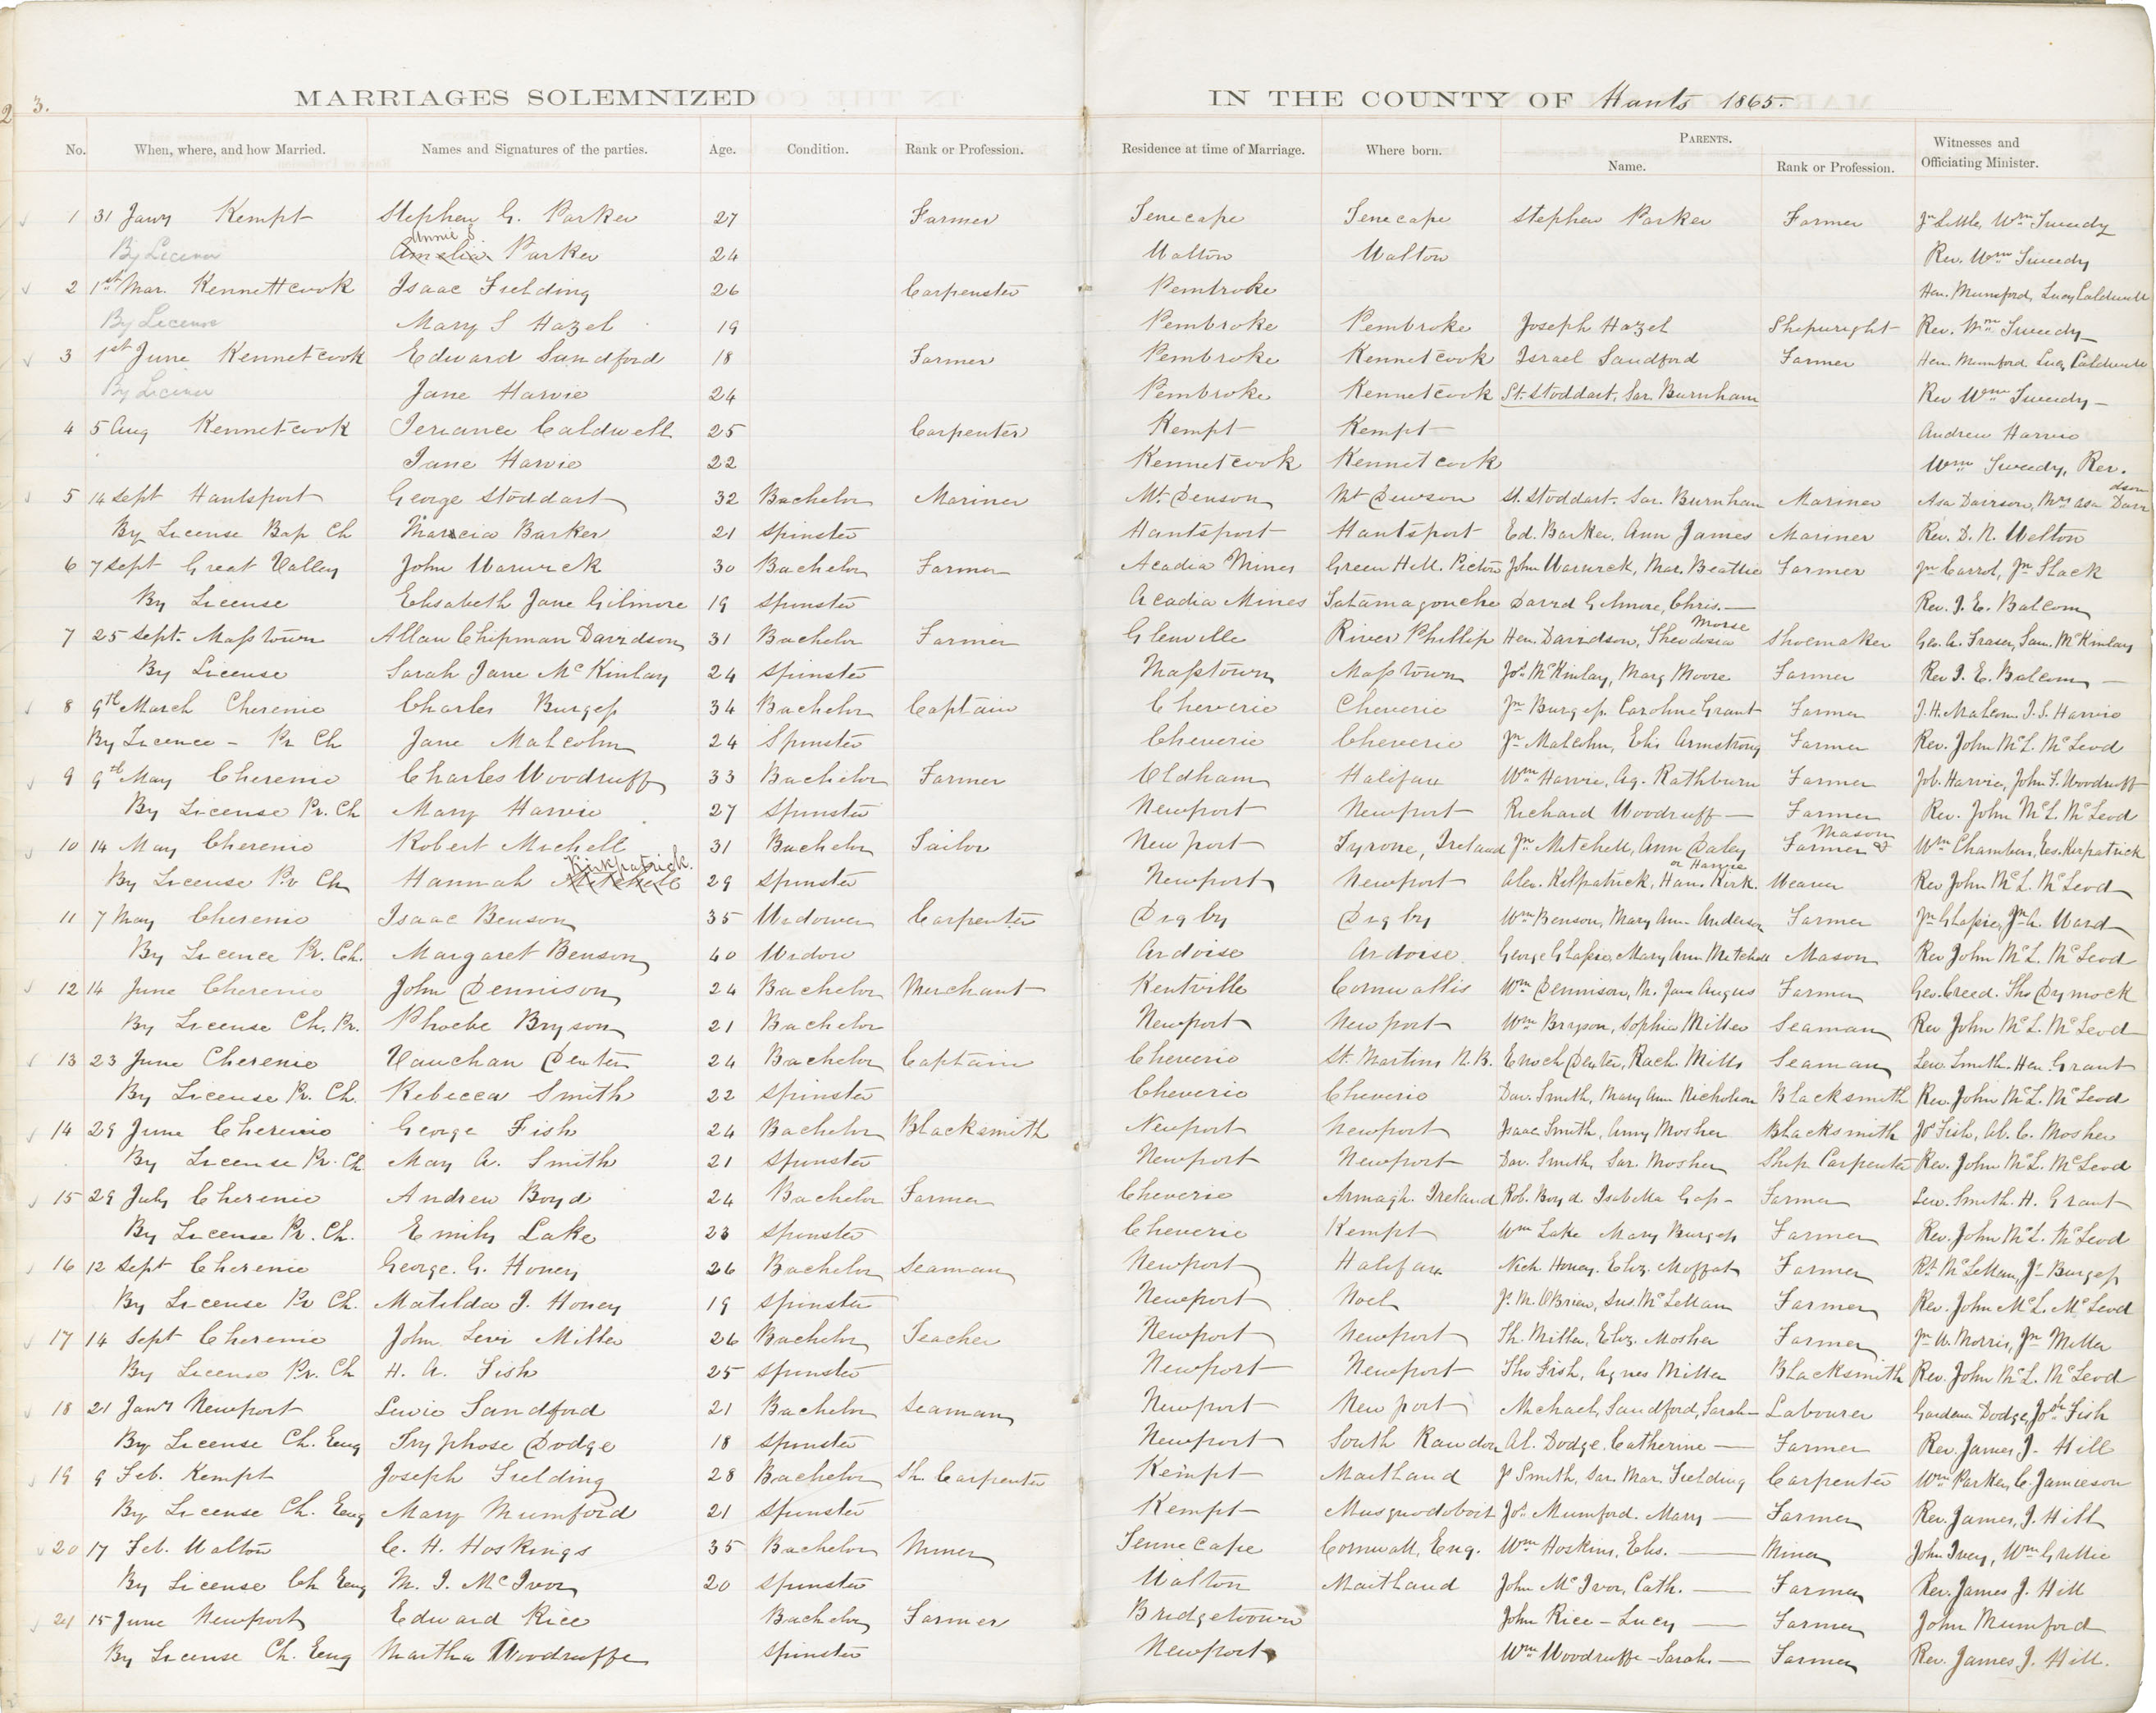 2 3.
MARRIAGES SOLEMNIZED IN THE COUNTY OF Hants 1865.
No. When, where, and how Married. Names and Signatures of the parties. Age. Condition. Rank or Profession. Residence at time of Marriage. Where born. PARENTS. Name. Rank or Profession. Witnesses and Officiating Minister.
1 31 Jany Kempt Stephen G. Parker 27 Farmer Tenecape Tenecape Stephen Parker Farmer Jn Little, Wm Tweedy
By License Annie S Amelia Parker 24 Walton Walton Rev. Wm Tweedy
2 1st Mar. Kennettcook Isaac Fielding 26 Carpenter Pembroke Hen. Mumford, Lucy Caldwell
By License Mary S Hazel 19 Pembroke Pembroke Joseph Hazel Shipwright Rev. Wm Tweedy
3 1st June Kennetcook Edward Sandford 18 Farmer Pembroke Kennetcook Israel Sandford Farmer Hen. Mumford Lucy Caldwell
By License Jane Harvie 24 Pembroke Kennetcook St. Stoddart, Sar. Burnham Rev Wm Tweedy
4 5 Aug Kennetcook Teriance Caldwell 25 Carpenter Kempt Kempt Andrew Harvie
Jane Harvie 22 Kennetcook Kennetcook Wm Tweedy, Rev.
5 14 Sept Hantsport George Stoddart 32 Bachelor Mariner Mt. Denson Mt Denson St. Stoddart. Sar. Burnham Mariner Asa Davison, Mrs Asa Davidson
By License Bap Ch Marcia Barker 21 Spinster Hantsport Hantsport Ed. Barker, Ann James Mariner Rev. D. N. Welton
6 7 Sept Great Valley John Warwick 30 Bachelor Farmer Acadia Mines Green Hill. Pictou John Warwick, Mar. Beattie Farmer Jn Carrol, Jn Slack
By License Elisabeth Jane Gilmore 19 Spinster Acadia Mines Tatamagouche David Gilmore, Chris. — Rev. J. E. Balcom
7 25 Sept. Masstown Allan Chipman Davidson 31 Bachelor Farmer Glenville River Phillip Hen. Davidson, Theodosia Morse Shoemaker Geo. A. Fraser, Sam. McKinlay
By License Sarah Jane McKinlay 24 Spinster Masstown Masstown Jos. McKinlay, Marg Moore Farmer Rev J. E. Balcom —
8 9th March Cherenie Charles Burgess 34 Bachelor Captain Cheverie Cheverie Jn Burgess. Caroline Grant Farmer J. H. Malcom J. S. Harvie
By Licence - Pr Ch Jane Malcolm 24 Spinster Cheverie Cheverie Jn Malcolm, Elis Armstrong Farmer Rev. John McL. McLeod
9 9th May Cherenie Charles Woodruff 33 Bachelor Farmer Oldham Halifax Wm Harvie, Ag. Rathburn Farmer Job. Harvie, John F. Woodruff
By License Pr. Ch Mary Harvie 27 Spinster Newport Newport Richard Woodruff — Farmer Rev. John McL. McLeod
10 14 May Cherenie Robert Michell 31 Bachelor Tailor Newport Tyrone, Ireland Jn Mitchell, Ann Daley Farmer & Mason Wm Chambers, Es. Kirpatrick
By License Pr Ch Hannah Mitchell Kirkpatrick. 29 Spinster Newport Newport Alex. Kilpatrick, Han. Kirk. or Harvie Weaver Rev John McL. McLeod
11 7 May Cherenie Isaac Benson 35 Widower Carpenter Digby Digby Wm Benson, Mary Ann Anderson Farmer Jn Glapie, Jn A. Ward
By Licence Pr. Ch. Margaret Benson 40 Widow Ardoise Ardoise. George Glapie, Mary Ann Mitchell Mason Rev John McL. McLeod
12 14 June Cherenie John Dennison 24 Bachelor Merchant Kentville Cornwallis Wm Dennison, M. Jane Angus Farmer Geo. Creed. Tho Dymock
By License Ch. Pr. Phoebe Bryson 21 Bachelor Newport Newport Wm Bryson, Sophia Miller Seaman Rev John McL. McLeod
13 23 June Cherenie Vauchan Dexter 24 Bachelor Captain Cheverie St. Martins N. B. Enoch Dexter, Rach. Mills Seaman Lew. Smith. Hen. Grant
By License Pr. Ch. Rebecca Smith 22 Spinster Cheverie Cheverie Dav. Smith, Mary Ann Nicholson Blacksmith Rev. John McL. McLeod
14 29 June Cherenie George Fish 24 Bachelor Blacksmith Newport Newport Isaac Smith, Amy Mosher Blacksmith Js Fish, Al. C. Mosher
By License Pr. Ch May A. Smith 21 Spinster Newport Newport Dav. Smith, Sar. Mosher Ship Carpenter Rev. John McL. McLeod
15 29 July Cherenie Andrew Boyd 24 Bachelor Farmer Cheverie Armagh. Ireland Rob. Boyd. Isabella Gass - Farmer Lew. Smith. H. Grant
By License Pr. Ch. Emily Lake 23 Spinster Cheverie Kempt Wm Lake Mary Burgess Farmer Rev. John McL. McLeod
16 12 Sept Cherenie George. G. Honey 26 Bachelor Seaman Newport Halifax Nich Honey. Eliz. Moffat Farmer Rt McLellan, Js Burgess
By License Pr Ch. Matilda J. Honey 19 Spinster Newport Noel Js. M. OBrien, Sus. McLellan Farmer Rev. John McL. McLeod
17 14 Sept Cherenie John Levi Miller 26 Bachelor Teacher Newport Newport Th. Miller, Eliz. Mosher Farmer Jn W. Morris, Jn Miller
By License Pr. Ch H. A. Fish 25 Spinster Newport Newport Tho Fish, Agnes Miller Blacksmith Rev. John McL. McLeod
18 21 Jany Newport Lewie Sandford 21 Bachelor Seaman Newport Newport Michael Sandford, Sarah — Labourer Gardener Dodge, Josh Fish
By License Ch. Eng Tryphose Dodge 18 Spinster Newport South Rawdon Al. Dodge. Catherine — Farmer Rev. James, J. Hill
19 9 Feb. Kempt Joseph Fielding 28 Bachelor Sh. Carpenter Kempt Maitland Js Smith, Sar. Mar. Fielding Carpenter Wm Parker, C. Jamieson
By License Ch. Eng Mary Mumford 21 Spinster Kempt Musquodoboit Jos. Mumford. Mary — Farmer Rev. James, J. Hill
20 17 Feb. Walton C. H. Hoskings 35 Bachelor Miner Tennecape Cornwall, Eng. Wm Hoskins, Elis. — Miner John Ivey, Wm Grillie
By License Ch Eng M. J. McIvor 20 Spinster Walton Maitland John McIvor, Cath. — Farmer Rev. James J. Hill
21 15 June Newport Edward Rice Bachelor Farmer Bridgetown John Rice - Lucy — Farmer John Mumford
By License Ch. Eng Martha Woodruffe Spinster Newport Wm Woodruffe - Sarah. — Farmer Rev. James J. Hill.